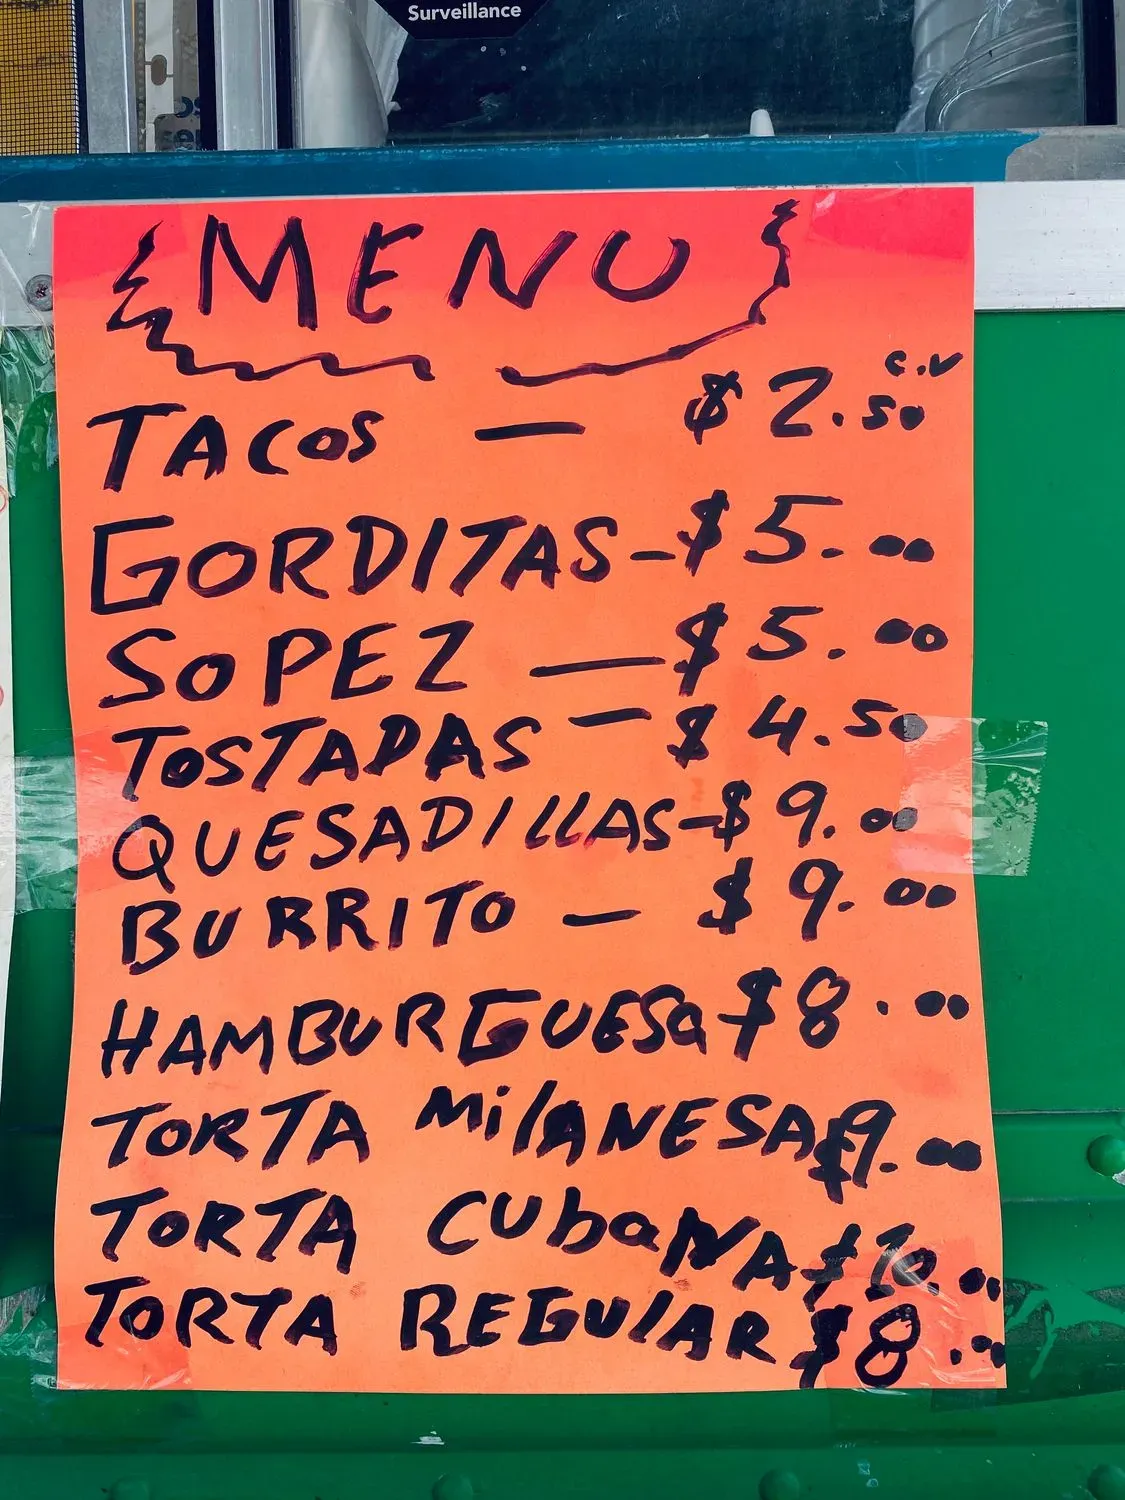 Surveillance
MENU
TACOS — $2.50 c.v
GORDITAS - $5.00
SOPEZ — $5.00
TOSTADAS — $4.50
QUESADILLAS - $9.00
BURRITO — $9.00
HAMBURGUESa $8.00
TORTA MilANESA $9.00
TORTA CUbaNA $10.00
TORTA REGUlAR $8.00